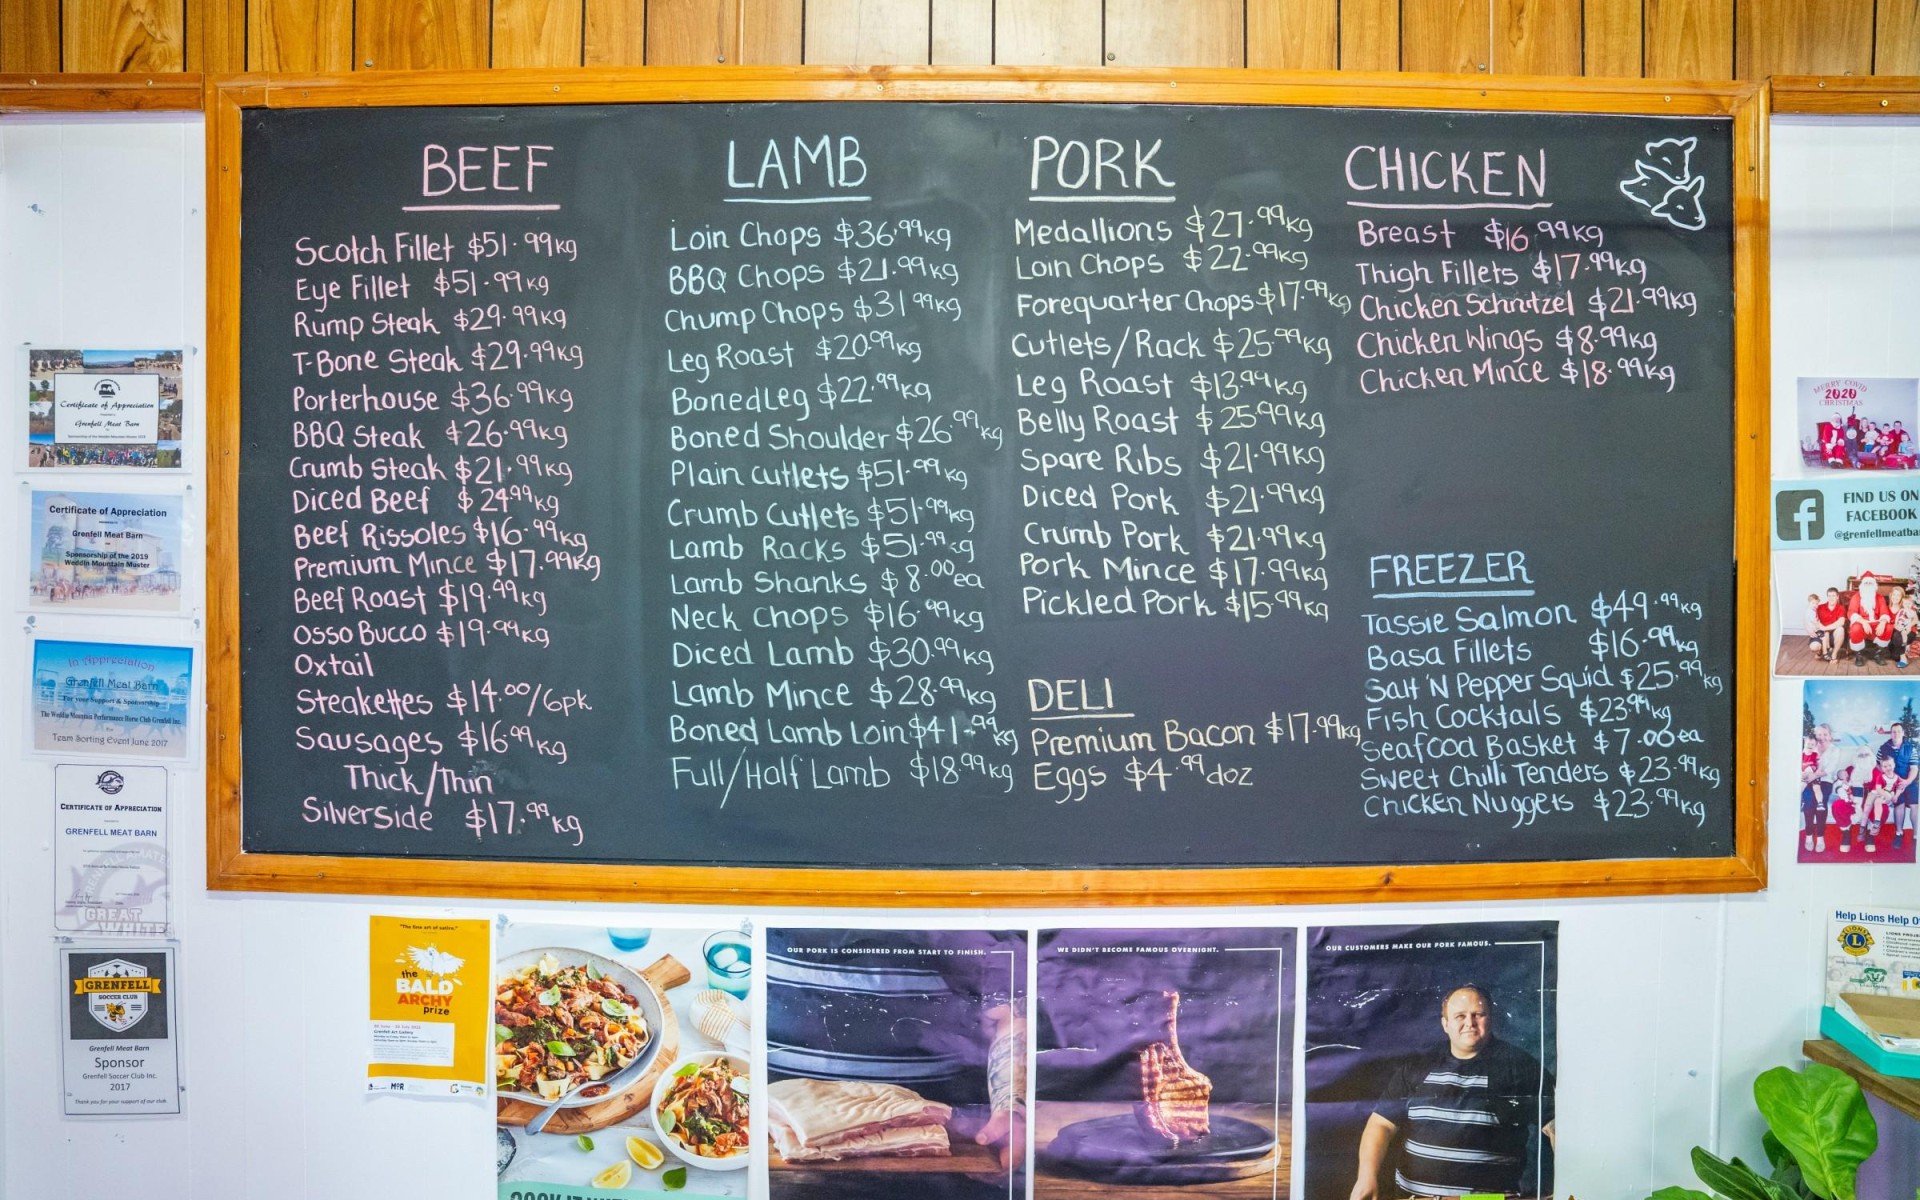 BEEF
Scotch Fillet $51.99kg
Eye Fillet $51.99kg
Rump Steak $29.99kg
T-Bone Steak $29.99kg
Porterhouse $36.99kg
BBQ Steak $26.99kg
Crumb Steak $21.99kg
Diced Beef $24.99kg
Beef Rissoles $16.99kg
Premium Mince $17.99kg
Beef Roast $19.99kg
Osso Bucco $19.99kg
Oxtail
Steakettes $14.00/6pk
Sausages $16.99kg
Thick/Thin
Silverside $17.99kg
LAMB
Loin Chops $36.99kg
BBQ Chops $21.99kg
Chump Chops $31 99kg
Leg Roast $20.99kg
Boned Leg $22.99kg
Boned Shoulder $26.99kg
Plain Cutlets $51.99kg
Crumb Cutlets $51.99kg
Lamb Racks $51.99kg
Lamb Shanks $8.00ea
Neck Chops $16.99kg
Diced Lamb $30.99kg
Lamb Mince $28.99kg
Boned Lamb Loin $41.99kg
Full/Half Lamb $18.99kg
PORK
Medallions $27.99kg
Loin Chops $22.99kg
Forequarter Chops $17.99kg
Cutlets/Rack $25.99kg
Leg Roast $13.99kg
Belly Roast $25.99kg
Spare Ribs $21.99kg
Diced Pork $21.99kg
Crumb Pork $21.99kg
Pork Mince $17.99kg
Pickled Pork $15.99kg
DELI
Premium Bacon $17.99kg
Eggs $4.99doz
CHICKEN
Breast $16 99kg
Thigh Fillets $17.99kg
Chicken Schnitzel $21.99kg
Chicken Wings $8.99kg
Chicken Mince $18.99kg
FREEZER
Tassie Salmon $49.99kg
Basa Fillets $16.99kg
Salt 'N Pepper Squid $25.99kg
Fish Cocktails $23.99kg
Seafood Basket $7.00ea
Sweet Chilli Tenders $23.99kg
Chicken Nuggets $23.99kg
Certificate of Appreciation
Grenfell Meat Barn
Certificate of Appreciation
Grenfell Meat Barn
Sponsorship of the 2019
Weddin Mountain Muster
In Appreciation
Grenfell Meat Barn
For your Support & Sponsorship
The Weddin Mountain Performance Horse Club Grenfell Inc.
Team Sorting Event June 2017
CERTIFICATE OF APPRECIATION
GRENFELL MEAT BARN
GREAT
WHITES
GRENFELL
SOCCER CLUB
Grenfell Meat Barn
Sponsor
Grenfell Soccer Club Inc.
2017
Thank you for your support of our club.
"The fine art of satire."
the
BALD
ARCHY
prize
Grenfell Art Gallery
OUR PORK IS CONSIDERED FROM START TO FINISH.
WE DIDN'T BECOME FAMOUS OVERNIGHT.
OUR CUSTOMERS MAKE OUR PORK FAMOUS.
MERRY COVID
2020
CHRISTMAS
f
FIND US ON
FACEBOOK
@grenfellmeatba
Help Lions Help O